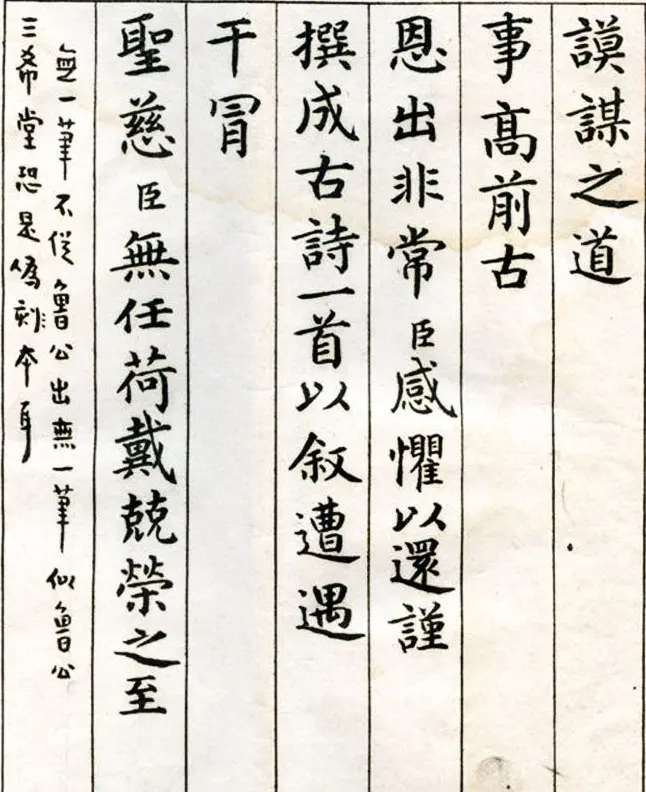 謨謀之道
事高前古
恩出非常臣感懼以還謹
撰成古詩一首以叙遭遇
干冒
聖慈臣無任荷戴兢榮之至
無一筆不從魯公出無一筆似魯公
三希堂恐是偽刻本耳